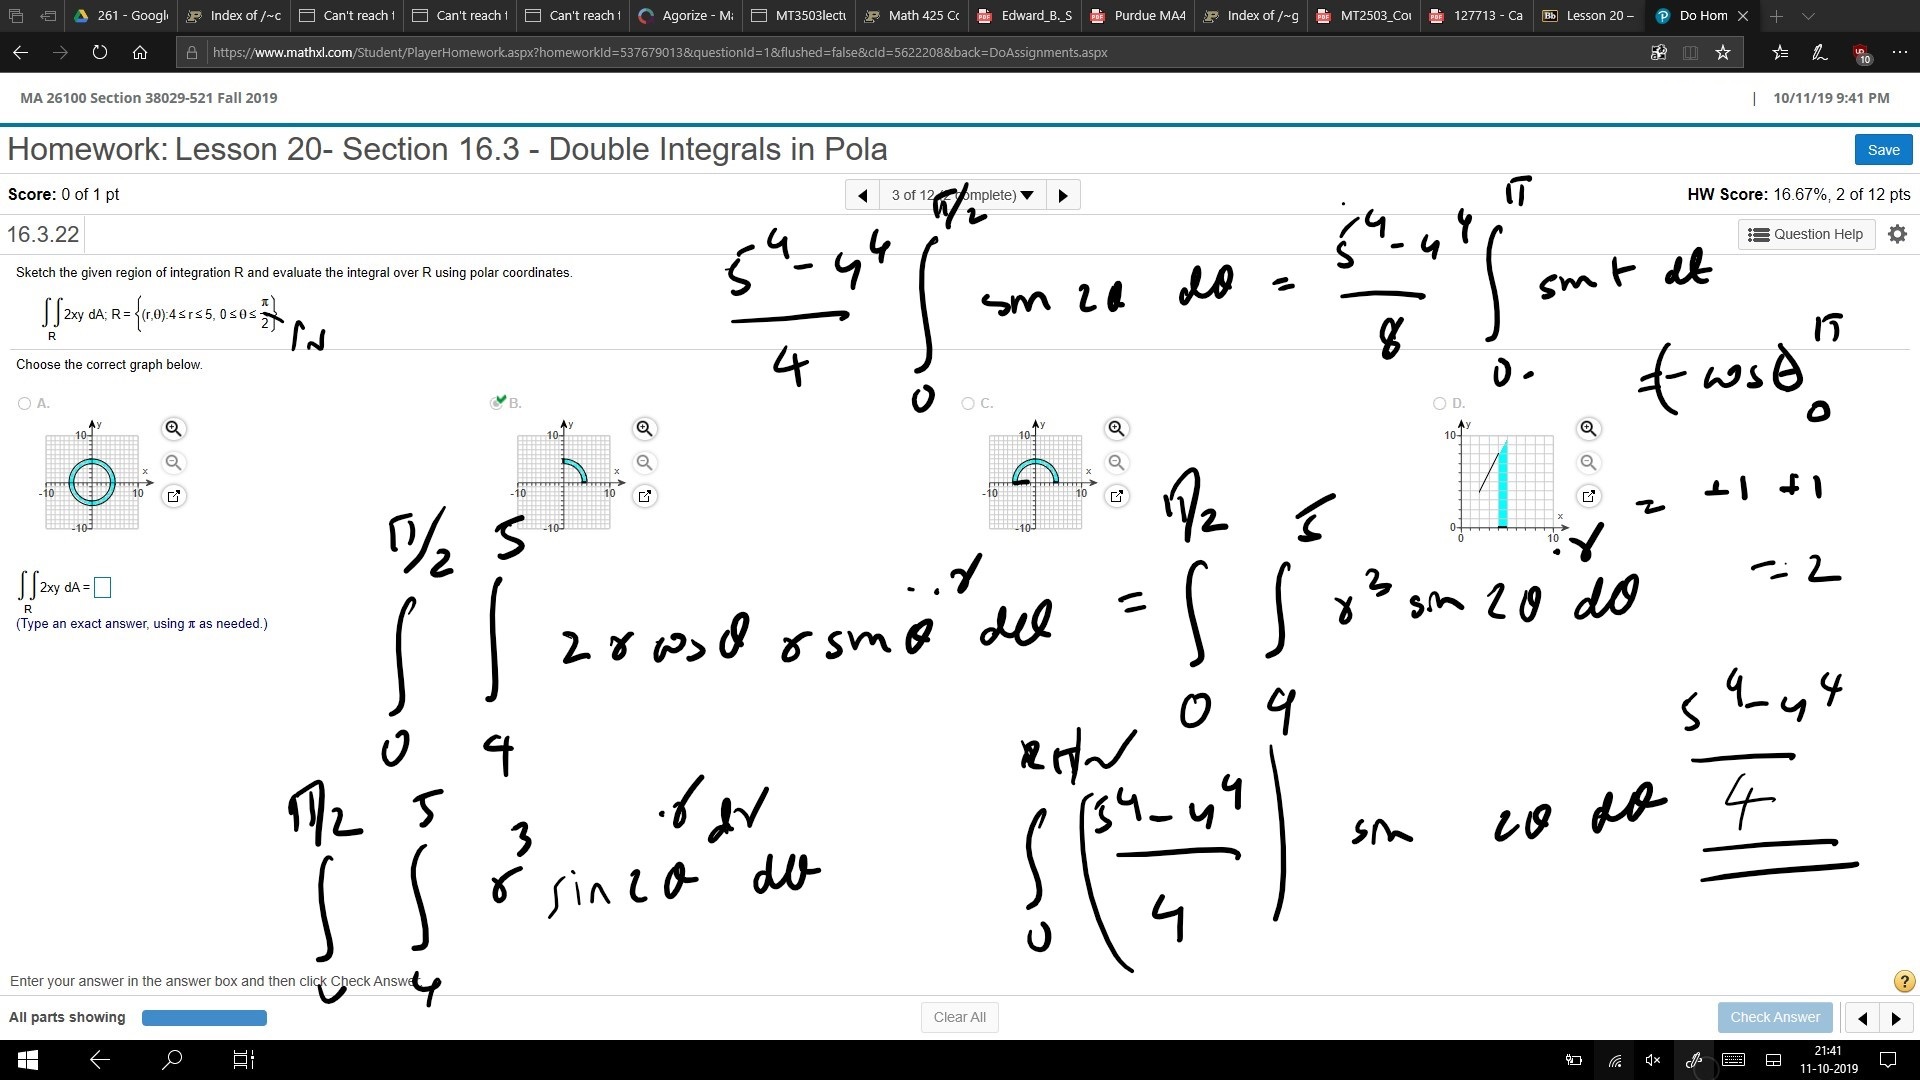 261 - Googl
Index of /~c
Can't reach t
Can't reach t
Can't reach t
Agorize - Ma
MT3503lectu
Math 425 Co
Edward_B._S
Purdue MA4
Index of /~g
MT2503_Cou
127713 - Ca
Lesson 20 –
Do Hom
https://www.mathxl.com/Student/PlayerHomework.aspx?homeworkId=537679013&questionId=1&flushed=false&cId=5622208&back=DoAssignments.aspx
MA 26100 Section 38029-521 Fall 2019
| 10/11/19 9:41 PM
Homework: Lesson 20- Section 16.3 - Double Integrals in Pola
Save
Score: 0 of 1 pt
3 of 12 (2 complete)
HW Score: 16.67%, 2 of 12 pts
16.3.22
Question Help
Sketch the given region of integration R and evaluate the integral over R using polar coordinates.
∫∫R 2xy dA; R = {(r,θ): 4 ≤ r ≤ 5, 0 ≤ θ ≤ π/2}
(5^4 - 4^4)/4 ∫_0^{π/2} sin 2θ dθ = (5^4 - 4^4)/8 ∫_0^π sin t dt
= (- cos θ)_0^π
= +1 +1
= 2
Choose the correct graph below.
A.
B.
C.
D.
10 y x -10 10 -10
10 y x -10 10 -10
10 y x -10 10 -10
10 y x 0 0 10
∫∫R 2xy dA =
(Type an exact answer, using π as needed.)
∫_0^{π/2} ∫_4^5 2 r cos θ r sin θ · r dθ = ∫_0^{π/2} ∫_4^5 r^3 sin 2θ dθ · r
∫_0^{π/2} ∫_4^5 r^3 sin 2θ · r dr dθ
∫_0 (5^4 - 4^4)/4 sin 2θ dθ
(5^4 - 4^4)/4
Enter your answer in the answer box and then click Check Answer
?
All parts showing
Clear All
Check Answer
21:41
11-10-2019